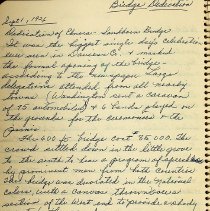 Bridge Dedication
Sept 1, 1926
Dedication of Clinton - Lundhein Bridge.
It was the biggest single day's celebration
ever seen in County & marked
the formal opening of the bridge -
according to the newspaper. Large
delegations attended from all nearby
towns. (Washington sent a
of 75 automobiles) & 6 bands played on
the grounds for the ceremonies & the
The 600 ft bridge cost $85 000. The
crowd settled down in the little grove
to the south to hear a program of speeches
by prominent men from both counties
The bridge was decorated in the national
colors, with a canvas thrown across
section of the west end to provide a shady